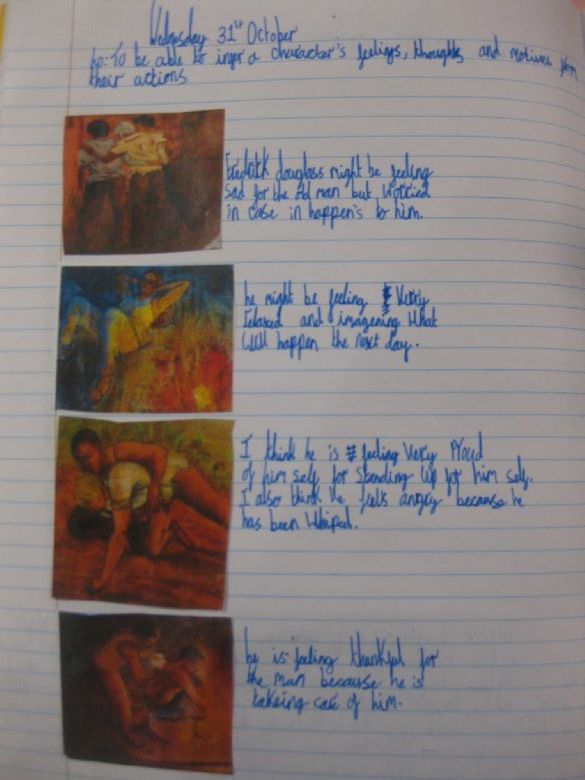 Wednesday 31st October
Lo: To be able to infer a character's feelings, thoughts and motives from
their actions
Fredrick douglass might be feeling
sad for the old man but worried
in case in happen's to him.
he might be feeling Very
relaxed and imagening what
will happen the next day.
I think he is feeling very Proud
of him self for standing up for him self.
I also think he feels angry because he
has been whiped.
he is feeling thankful for
the man because he is
takeing care of him.